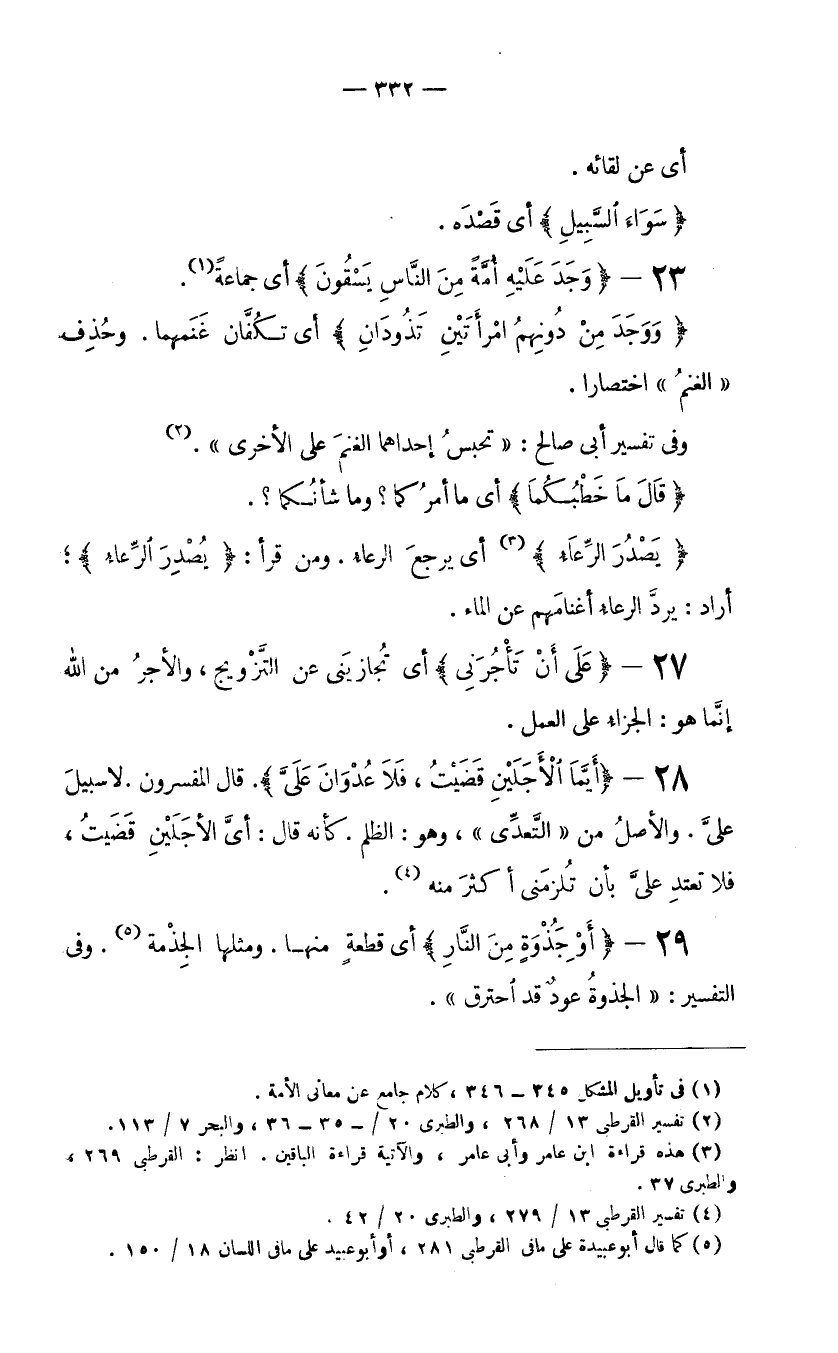 — ٣٣٢ —
أى عن لقائه .
﴿ سَوَاءَ ٱلسَّبِيلِ ﴾ أى قَصْدَه .
٢٣ – ﴿ وَجَدَ عَلَيْهِ أُمَّةً مِنَ النَّاسِ يَسْقُونَ ﴾ أى جماعةً (١) .
﴿ وَوَجَدَ مِنْ دُونِهِمُ امْرأَتَيْنِ تَذُودَانِ ﴾ أى تكُفَّان غَنَمهما . وحُذِف
« الغنمُ » اختصارا .
وفى تفسير أبى صالح : « تحبسُ إحداهما الغنمَ على الأخرى » . (٢)
﴿ قَالَ مَا خَطْبُكُمَا ﴾ أى ما أمرُكما ؟ وما شأنُكما ؟ .
﴿ يَصْدُرَ الرِّعَاءَ ﴾ (٣) أى يرجعَ الرعاء . ومن قرأ : ﴿ يُصْدِرَ ٱلرِّعاء ﴾ ؛
أراد : يردَّ الرعاء أغنامَهم عن الماء .
٢٧ – ﴿ عَلَى أَنْ تَأْجُرَنِي ﴾ أى تُجازيَنى عن التَّزويج ، والأجرُ من الله
إنَّما هو : الجزاء على العمل .
٢٨ – ﴿ أَيَّمَا ٱلْأَجَلَيْنِ قَضَيْتُ ، فَلَا عُدْوَانَ عَلَىَّ ﴾ . قال المفسرون . لا سبيلَ
علىَّ . والأصلُ من « التَّعدِّى » ، وهو : الظلم . كأنه قال : أىَّ الأجَلَيْنِ قَضَيتُ ،
فلا تعتدِ علىَّ بأن تُلزمَنى أكثرَ منه (٤) .
٢٩ – ﴿ أَوْ جَذْوَةٍ مِنَ النَّارِ ﴾ أى قطعةٍ منها . ومثلها الجِذْمة (٥) . وفى
التفسير : « الجذوةُ عودٌ قد ٱحترق » .
(١) فى تأويل المشكل ٣٤٥ – ٣٤٦ ، كلام جامع عن معانى الأمة .
(٢) تفسير القرطبى ١٣ / ٢٦٨ ، والطبرى ٢٠ / – ٣٥ – ٣٦ ، والبحر ٧ / ١١٣ .
(٣) هذه قراءة ابن عامر وأبى عامر ، والآتية قراءة الباقين . انظر : القرطبى ٢٦٩ ،
والطبرى ٣٧ .
(٤) تفسير القرطبى ١٣ / ٢٧٩ ، والطبرى ٢٠ / ٤٢ .
(٥) كما قال أبو عبيدة على مافى القرطبى ٢٨١ ، أو أبو عبيد على مافى اللسان ١٨ / ١٥٠ .